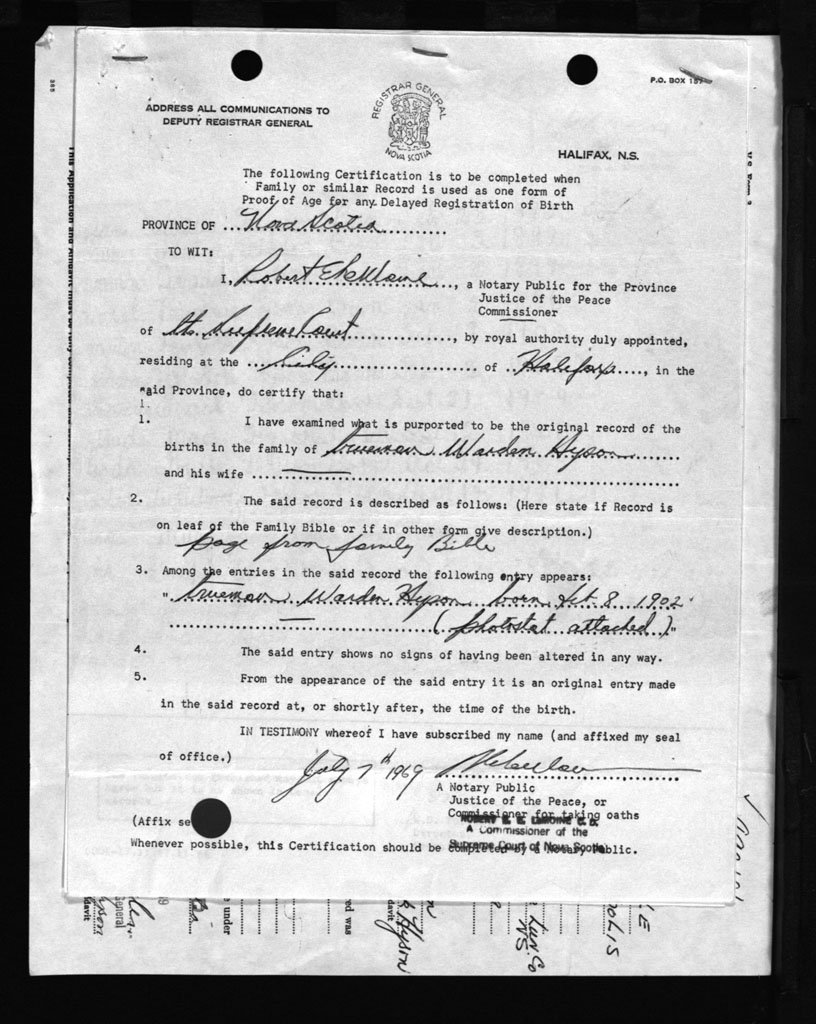 P.O. BOX 157
REGISTRAR GENERAL
NOVA SCOTIA
ADDRESS ALL COMMUNICATIONS TO
DEPUTY REGISTRAR GENERAL
HALIFAX, N.S.
The following Certification is to be completed when
Family or similar Record is used as one form of
Proof of Age for any Delayed Registration of Birth
PROVINCE OF ...Nova Scotia..........
TO WIT:
I, Robert E......, a Notary Public for the Province
Justice of the Peace
Commissioner
of the Supreme Court................, by royal authority duly appointed,
residing at the ...City........................ of ..Halifax...., in the
said Province, do certify that:
1.
1. I have examined what is purported to be the original record of the
births in the family of Trueman Warden Hyson.......
and his wife ........................................................
2. The said record is described as follows: (Here state if Record is
on leaf of the Family Bible or if in other form give description.)
page from family Bible
3. Among the entries in the said record the following entry appears:
" Trueman Warden Hyson born 8 1902
(photostat attached)"
4. The said entry shows no signs of having been altered in any way.
5. From the appearance of the said entry it is an original entry made
in the said record at, or shortly after, the time of the birth.
IN TESTIMONY whereof I have subscribed my name (and affixed my seal
of office.)
July 7th 1969
A Notary Public
Justice of the Peace, or
Commissioner for taking oaths
ROBERT E.
A Commissioner of the
(Affix se
Supreme Court of Nova Scotia
Whenever possible, this Certification should be completed by a Notary Public.
General
davit
under
red was
davit
Hyson
Lun. Co
N.S.